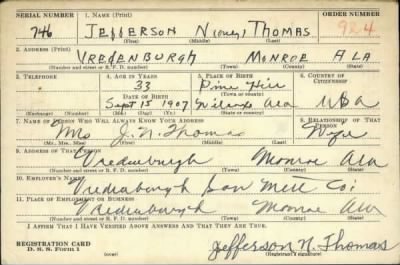 SERIAL NUMBER 1. NAME (Print) ORDER NUMBER (Print)
746 JEFFERSON THOMAS 924
(First) (Middle) (Last)
2. ADDRESS (Print)
VREDENBURGH MONROE ALA
(Number and street or R. F. D. number) (Town) (County) (State)
3. TELEPHONE 4. AGE IN YEARS 5. PLACE OF BIRTH 6. COUNTRY OF CITIZENSHIP
33 Pine Hill
DATE OF BIRTH (Town or county)
Sept 15 1907 Wilcox Ala USA
(Exchange) (Number) (Mo.) (Day) (Yr.) (State or country)
7. NAME OF PERSON WHO WILL ALWAYS KNOW YOUR ADDRESS 8. RELATIONSHIP OF THAT PERSON
Mrs J. N. Thomas Wife
(Mr., Mrs., Miss) (First) (Middle) (Last)
9. ADDRESS OF THAT PERSON
Vredenburgh Monroe Ala
(Number and street or R. F. D. number) (Town) (County) (State)
10. EMPLOYER'S NAME
Vredenburgh Saw Mill Co.
11. PLACE OF EMPLOYMENT OR BUSINESS
Vredenburgh Monroe Ala
(Number and street or R. F. D. number) (Town) (County) (State)
I AFFIRM THAT I HAVE VERIFIED ABOVE ANSWERS AND THAT THEY ARE TRUE.
REGISTRATION CARD Jefferson N. Thomas
D. S. S. FORM 1 (over) (Registrant's signature)